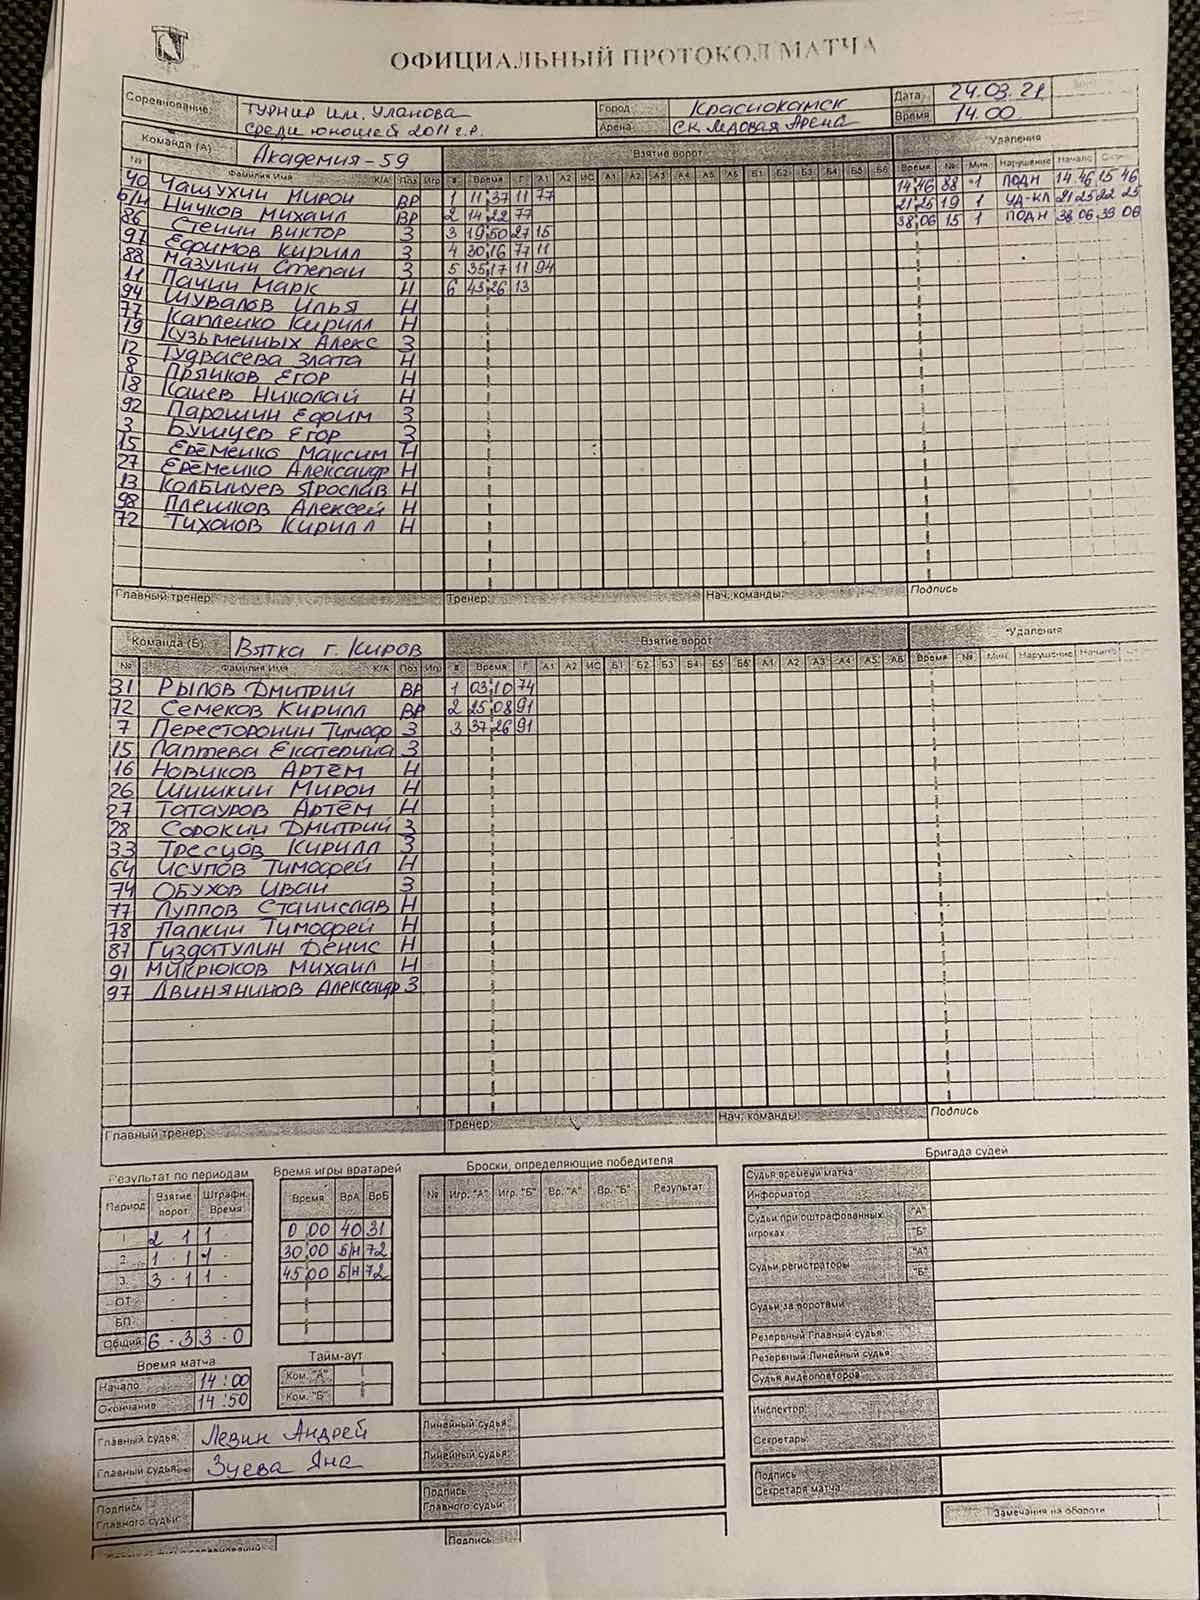 ОФИЦИАЛЬНЫЙ ПРОТОКОЛ МАТЧА
Соревнование: Турнир им. Уланова Город Краснокамск Дата 24.03.21
среди юношей 2011 г.р. Арена СК Ледовая Арена Время 14.00
Команда (А) Академия-59 Взятие ворот Удаления
№ Фамилия Имя К/А Поз Игр # Время Г А1 А2 ИС А1 А2 А3 А4 А5 А6 Б1 Б2 Б3 Б4 Б5 Б6 Время № Мин Нарушение Начало
40 Чащухин Мирон ВР 1 11 37 11 77 14 46 88 1 ПОДН 14 46 15 46
б/н Ничков Михаил ВР 2 14 22 77 21 25 19 1 УД-КЛ 21 25 22 25
86 Стенин Виктор З 3 19 50 27 15 38 06 15 1 ПОДН 38 06 39 06
97 Ефимов Кирилл З 4 30 16 77 11
88 Мазунин Степан З 5 35 17 11 94
11 Пачин Марк Н 6 43 26 13
94 Шувалов Илья Н
77 Капленко Кирилл Н
19 Кузьменных Алекс З
12 Гудвасева Злата Н
8 Пряников Егор Н
18 Канев Николай Н
92 Парошин Ефим З
3 Бушуев Егор З
15 Ерёменко Максим Н
27 Ерёменко Александр Н
13 Колбинуев Ярослав Н
98 Плешков Алексей Н
72 Тихонов Кирилл Н
Главный тренер: Тренер: Нач. команды: Подпись
Команда (Б) Вятка г. Киров Взятие ворот Удаления
№ Фамилия Имя К/А Поз Игр # Время Г А1 А2 ИС Б1 Б2 Б3 Б4 Б5 Б6 А1 А2 А3 А4 А5 А6 Время № Мин. Нарушение Начало
31 Рылов Дмитрий ВР 1 03 10 74
72 Семеков Кирилл ВР 2 25 08 91
7 Пересторонин Тимоф З 3 37 26 91
15 Лаптева Екатерина З
16 Новиков Артём Н
26 Шишкин Мирон Н
27 Татауров Артём Н
28 Сорокин Дмитрий З
33 Тресцов Кирилл З
64 Исупов Тимофей Н
74 Обухов Иван З
77 Луппов Станислав Н
78 Палкин Тимофей Н
87 Гиздатулин Денис Н
91 Микрюков Михаил Н
97 Двинянинов Александр З
Главный тренер: Тренер: Нач. команды: Подпись
Результат по периодам Время игры вратарей Броски, определяющие победителя Бригада судей
Период Взятие ворот Штрафн. Время Время ВрА ВрБ № Игр. "А" Игр. "Б" Вр. "А" Вр. "Б" Результат
1 2 1 1 -
2 1 1 1 -
3. 3 - 1 1 -
ОТ - - -
БП - - -
Общий 6 - 3 3 - 0
0 00 40 31
30 00 Б/Н 72
45 00 Б/Н 72
Судья времени матча
Информатор
Судьи при оштрафованных игроках "А" "Б"
Судьи регистраторы "А" "Б"
Судьи за воротами
Резервный Главный судья:
Резервный Линейный судья:
Судья видеоповторов
Инспектор:
Секретарь:
Подпись Секретаря матча
Замечания на обороте
Время матча Тайм-аут
Начало 14:00 Ком. "А"
Окончание 14:50 Ком. "Б"
Главный судья: Левин Андрей Линейный судья:
Главный судья: Зуева Яна Линейный судья:
Подпись Главного судьи: Подпись Главного судьи:
Подпись: